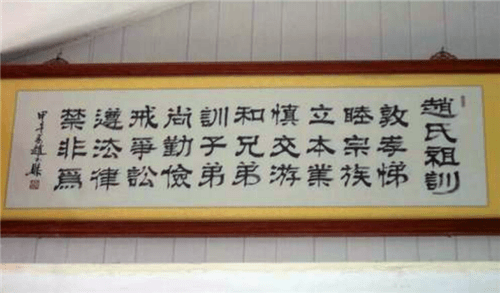 趙氏祖訓
敦孝悌
睦宗族
立本業
慎交游
和兄弟
訓子弟
尚勤儉
戒爭訟
遵法律
禁非為